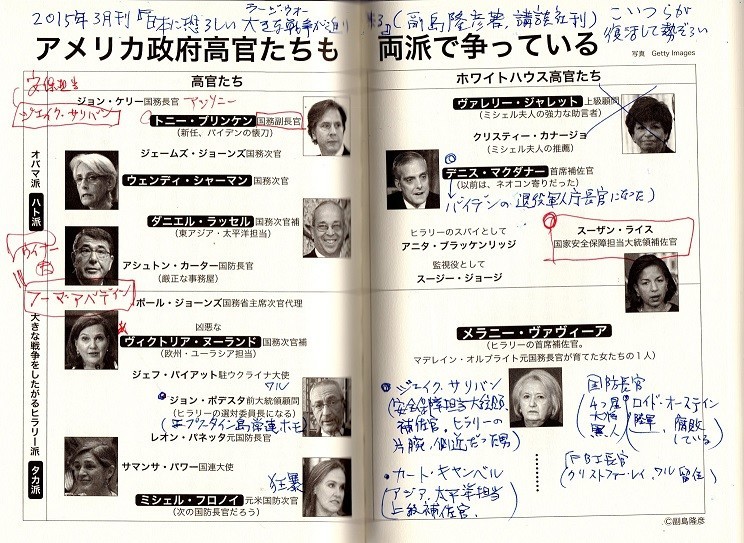 2015年3月刊『日本に恐ろしい大きな戦争が迫り
ラージ・ウォー
来る』(副島隆彦著、講談社刊)
こいつらが
復活して勢ぞろい
アメリカ政府高官たちも 両派で争っている
写真 Getty Images
高官たち
安保担当
ジェイク・サリバン
ジョン・ケリー国務長官
アンソニー
トニー・ブリンケン 国務副長官
(新任、バイデンの懐刀)
ジェームズ・ジョーンズ国務次官
ウェンディ・シャーマン 国務次官
ダニエル・ラッセル 国務次官補
(東アジア・太平洋担当)
アシュトン・カーター国防長官
(厳正な事務屋)
オバマ派
ハト派
フーマ・アバディン
ポール・ジョーンズ国務省主席次官代理
凶悪な
ヴィクトリア・ヌーランド 国務次官補
(欧州・ユーラシア担当)
ジェフ・パイアット駐ウクライナ大使
ワル
ジョン・ポデスタ 前大統領顧問
(ヒラリーの選対委員長になる)
(エプスタイン島常連、ホモ)
レオン・パネッタ元国防長官
サマンサ・パワー国連大使
狂暴
ミシェル・フロノイ 元米国防次官
(次の国防長官だろう)
大きな戦争をしたがるヒラリー派
タカ派
ホワイトハウス高官たち
ヴァレリー・ジャレット 上級顧問
(ミシェル夫人の強力な助言者)
クリスティー・カナージョ
(ミシェル夫人の推薦)
デニス・マクダナー 首席補佐官
(以前は、ネオコン寄りだった)
バイデンの退役軍人庁長官になった)
ヒラリーのスパイとして
アニタ・ブラッケンリッジ
監視役として
スージー・ジョージ
スーザン・ライス
国家安全保障担当大統領補佐官
メラニー・ヴァヴィーア
(ヒラリーの首席補佐官。
マデレイン・オルブライト元国務長官が育てた女たちの1人)
ジェイク・サリバン
(安全保障担当大統領
補佐官。ヒラリーの
片腕、側近だった男)
カート・キャンベル
(アジア、太平洋担当
上級補佐官。
国防長官
4つ星
大将
黒人
ロイド・オースティン
陸軍、
腐敗
している
FBI長官
(クリストファー・レイ、ワル 留任)
©副島隆彦